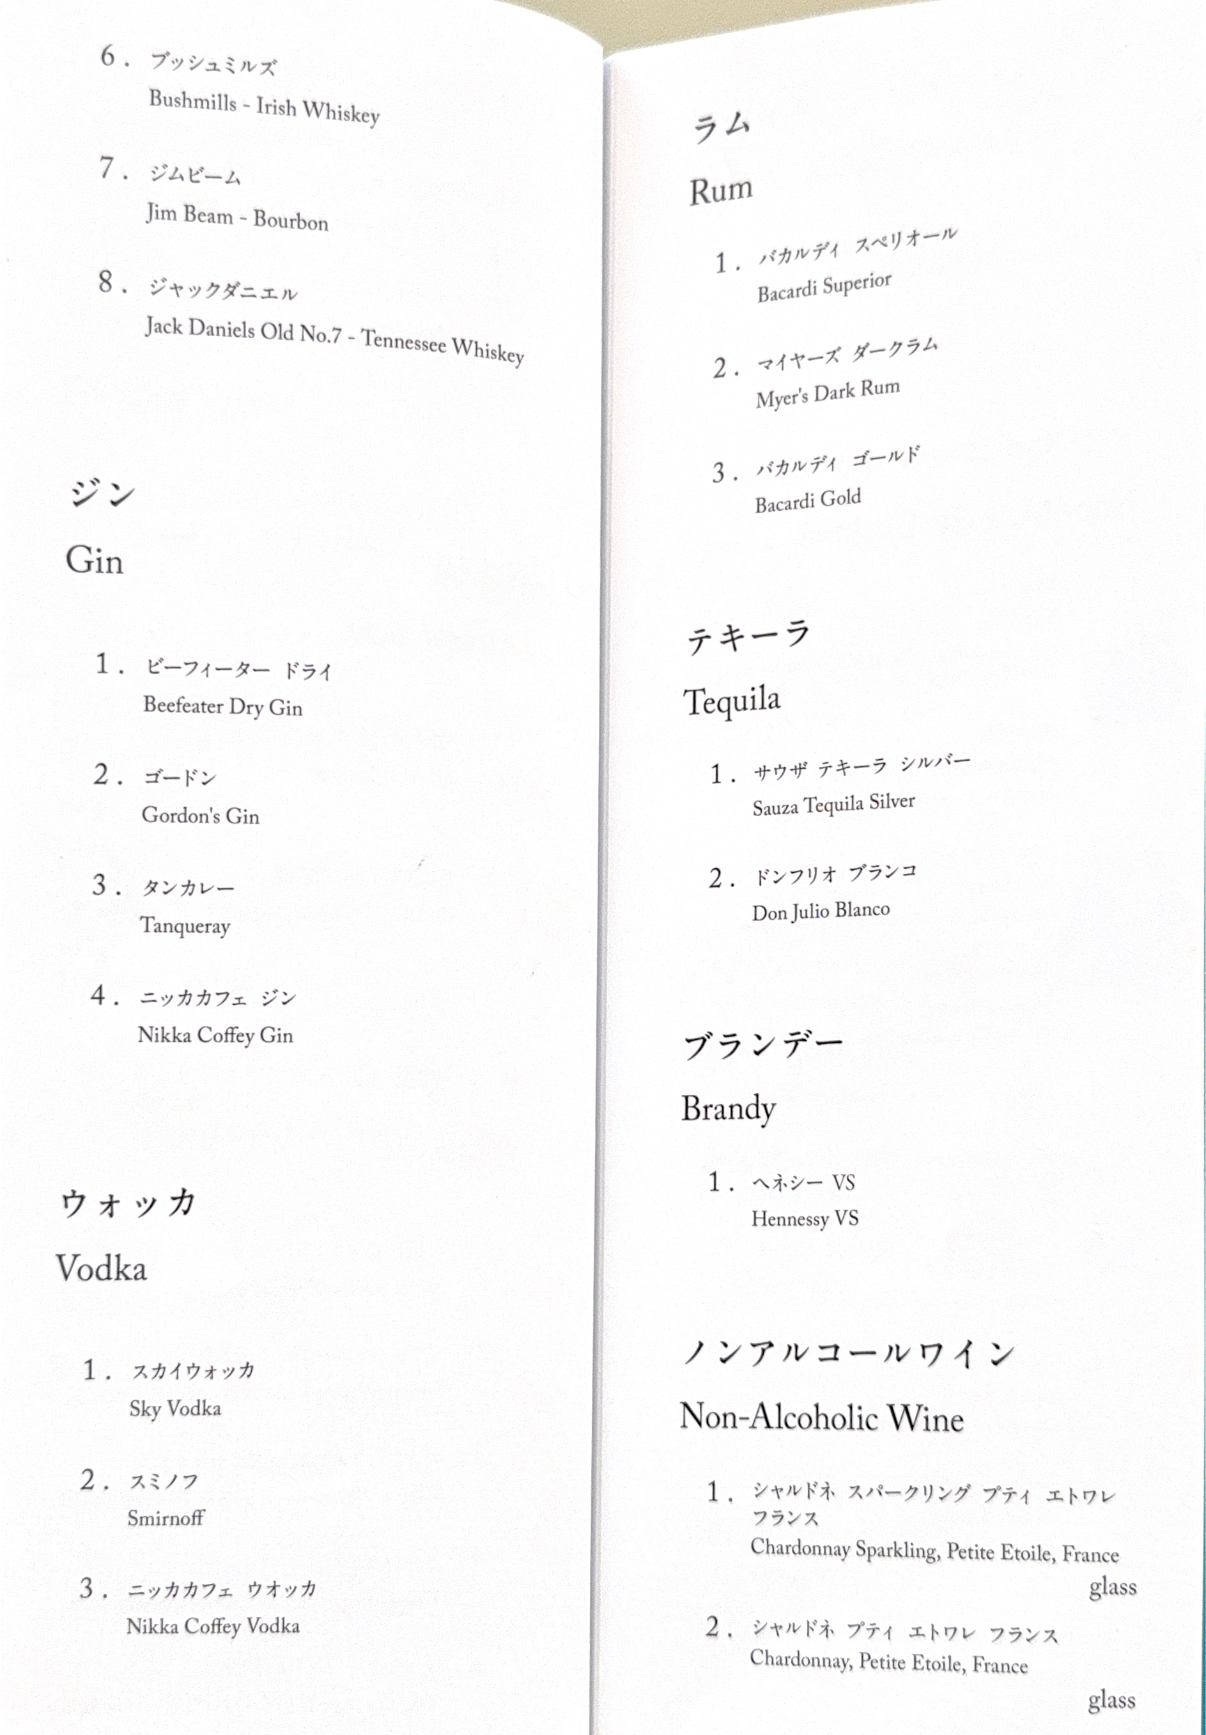 6. ブッシュミルズ
Bushmills - Irish Whiskey
7. ジムビーム
Jim Beam - Bourbon
8. ジャックダニエル
Jack Daniels Old No.7 - Tennessee Whiskey
ジン
Gin
1. ビーフィーター ドライ
Beefeater Dry Gin
2. ゴードン
Gordon's Gin
3. タンカレー
Tanqueray
4. ニッカカフェ ジン
Nikka Coffey Gin
ウォッカ
Vodka
1. スカイウォッカ
Sky Vodka
2. スミノフ
Smirnoff
3. ニッカカフェ ウオッカ
Nikka Coffey Vodka
ラム
Rum
1. バカルディ スペリオール
Bacardi Superior
2. マイヤーズ ダークラム
Myer's Dark Rum
3. バカルディ ゴールド
Bacardi Gold
テキーラ
Tequila
1. サウザ テキーラ シルバー
Sauza Tequila Silver
2. ドンフリオ ブランコ
Don Julio Blanco
ブランデー
Brandy
1. ヘネシー VS
Hennessy VS
ノンアルコールワイン
Non-Alcoholic Wine
1. シャルドネ スパークリング プティ エトワレ
フランス
Chardonnay Sparkling, Petite Etoile, France
glass
2. シャルドネ プティ エトワレ フランス
Chardonnay, Petite Etoile, France
glass